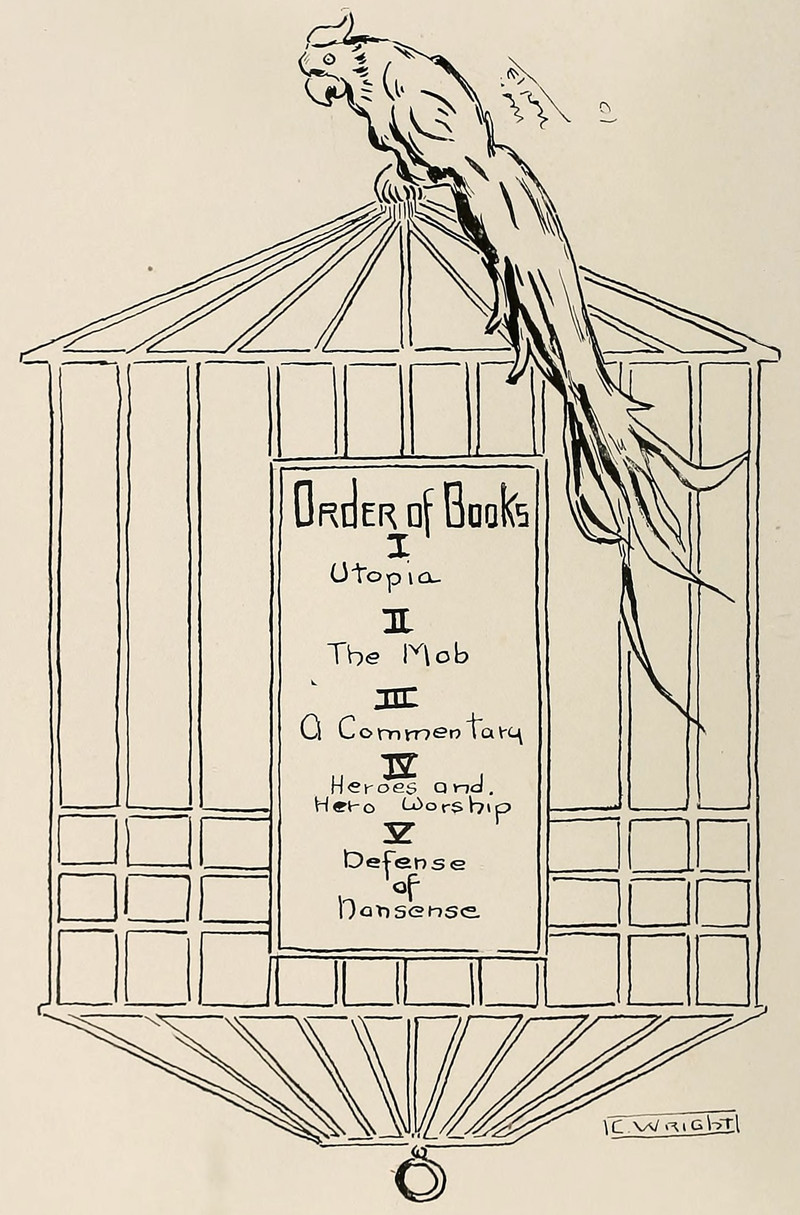 Order of Books
I
Utopia
II
The Mob
III
A Commentary
IV
Heroes and.
Hero Worship
V
Defense
of
Nonsense
C. Wright